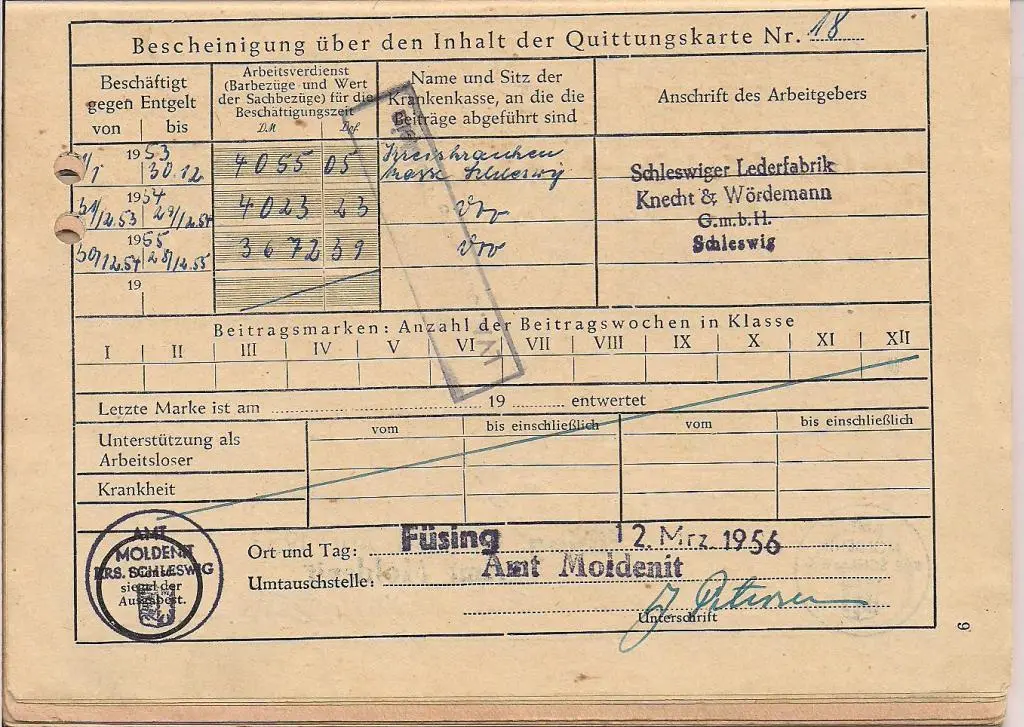 Bescheinigung über den Inhalt der Quittungskarte Nr. 18
Beschäftigt
gegen Entgelt
von | bis
Arbeitsverdienst
(Barbezüge und Wert
der Sachbezüge) für die
Beschäftigungszeit
DM Dpf.
Name und Sitz der
Krankenkasse, an die die
Beiträge abgeführt sind
Anschrift des Arbeitgebers
1953
1/1 30.12 4055 05 Kreiskranken
kasse Schleswig
1954
31/12.53 29/12.54 4023 23
1955
30/12.54 28/12.55 3672 39
19
Schleswiger Lederfabrik
Knecht & Wördemann
G.m.b.H.
Schleswig
Beitragsmarken: Anzahl der Beitragswochen in Klasse
I | II | III | IV | V | VI | VII | VIII | IX | X | XI | XII
Letzte Marke ist am 19 entwertet
vom bis einschließlich vom bis einschließlich
Unterstützung als
Arbeitsloser
Krankheit
AMT
MOLDENIT
KRS. SCHLESWIG
Dienst-
siegel der
Ausgabest.
Ort und Tag: Füsing 12. Mrz. 1956
Umtauschstelle: Amt Moldenit
Unterschrift
9